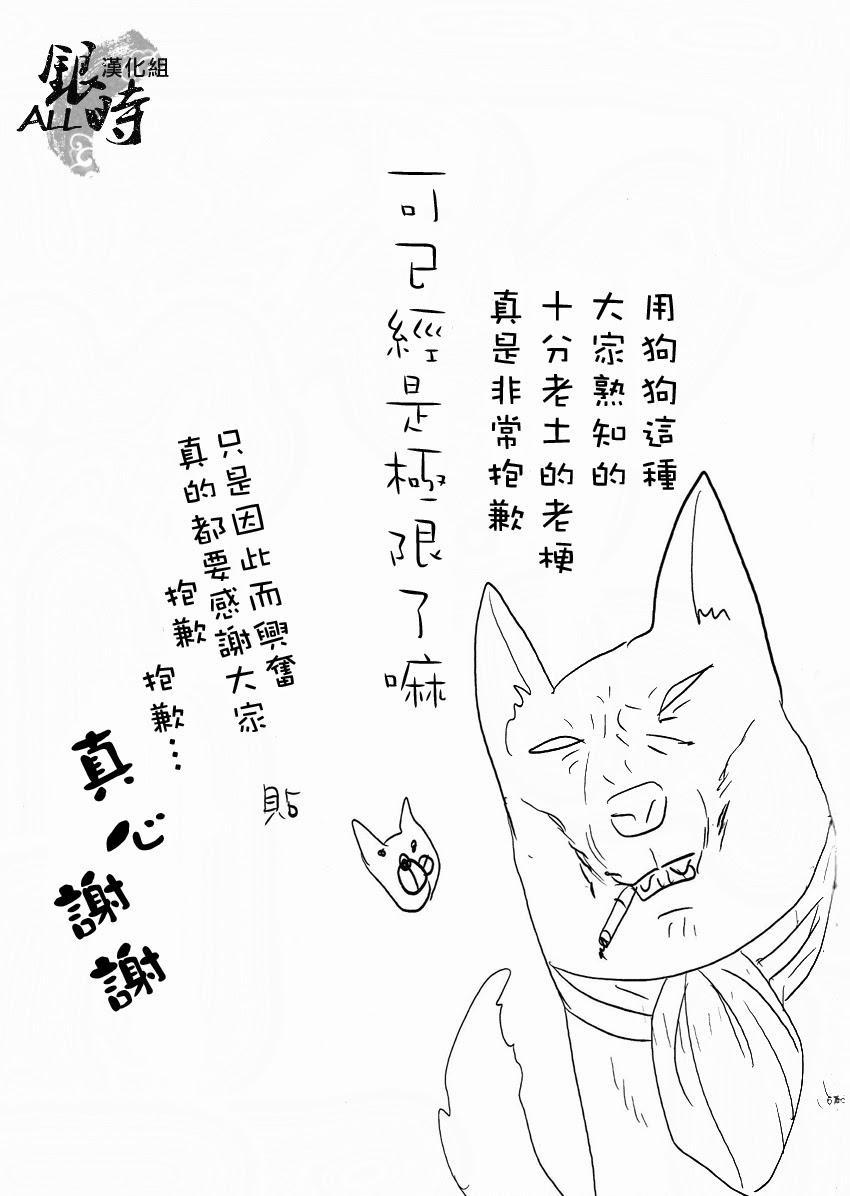 漢化組
銀時
ALL
用狗狗這種
大家熟知的
十分老土的老梗
真是非常抱歉
可已經是極限了嘛
只是因此而興奮
真的都要感謝大家
抱歉
抱歉…
貼
真心謝謝